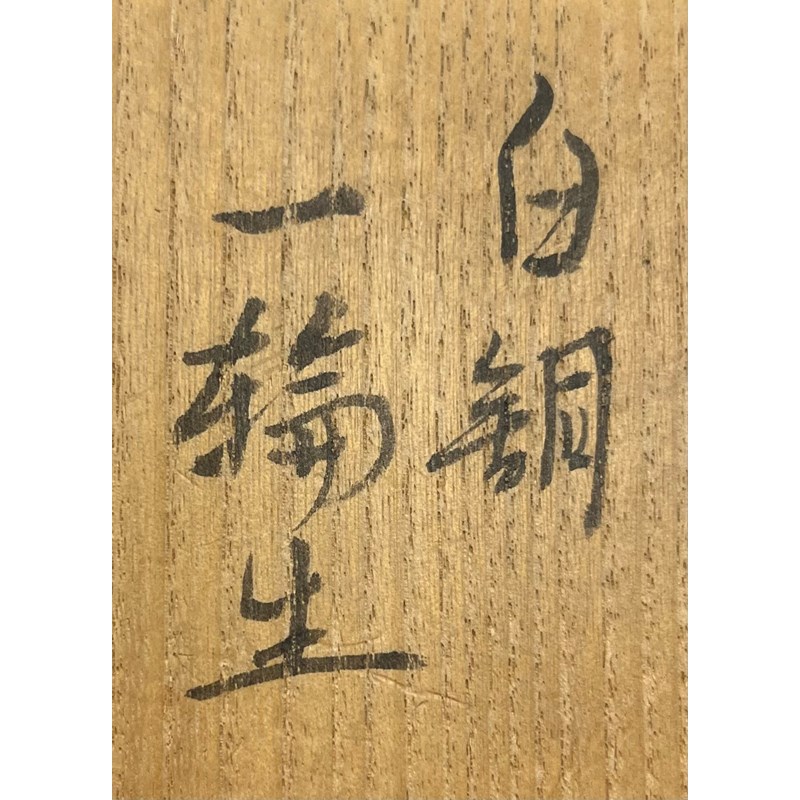 白銅
一輪生